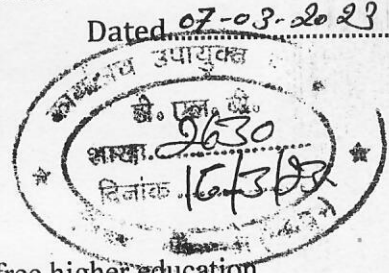 Dated 07-03-2023
कार्यालय उपायुक्त
डी. एल. ओ.
शाखा 2630
दिनांक 16/3/23
free higher education